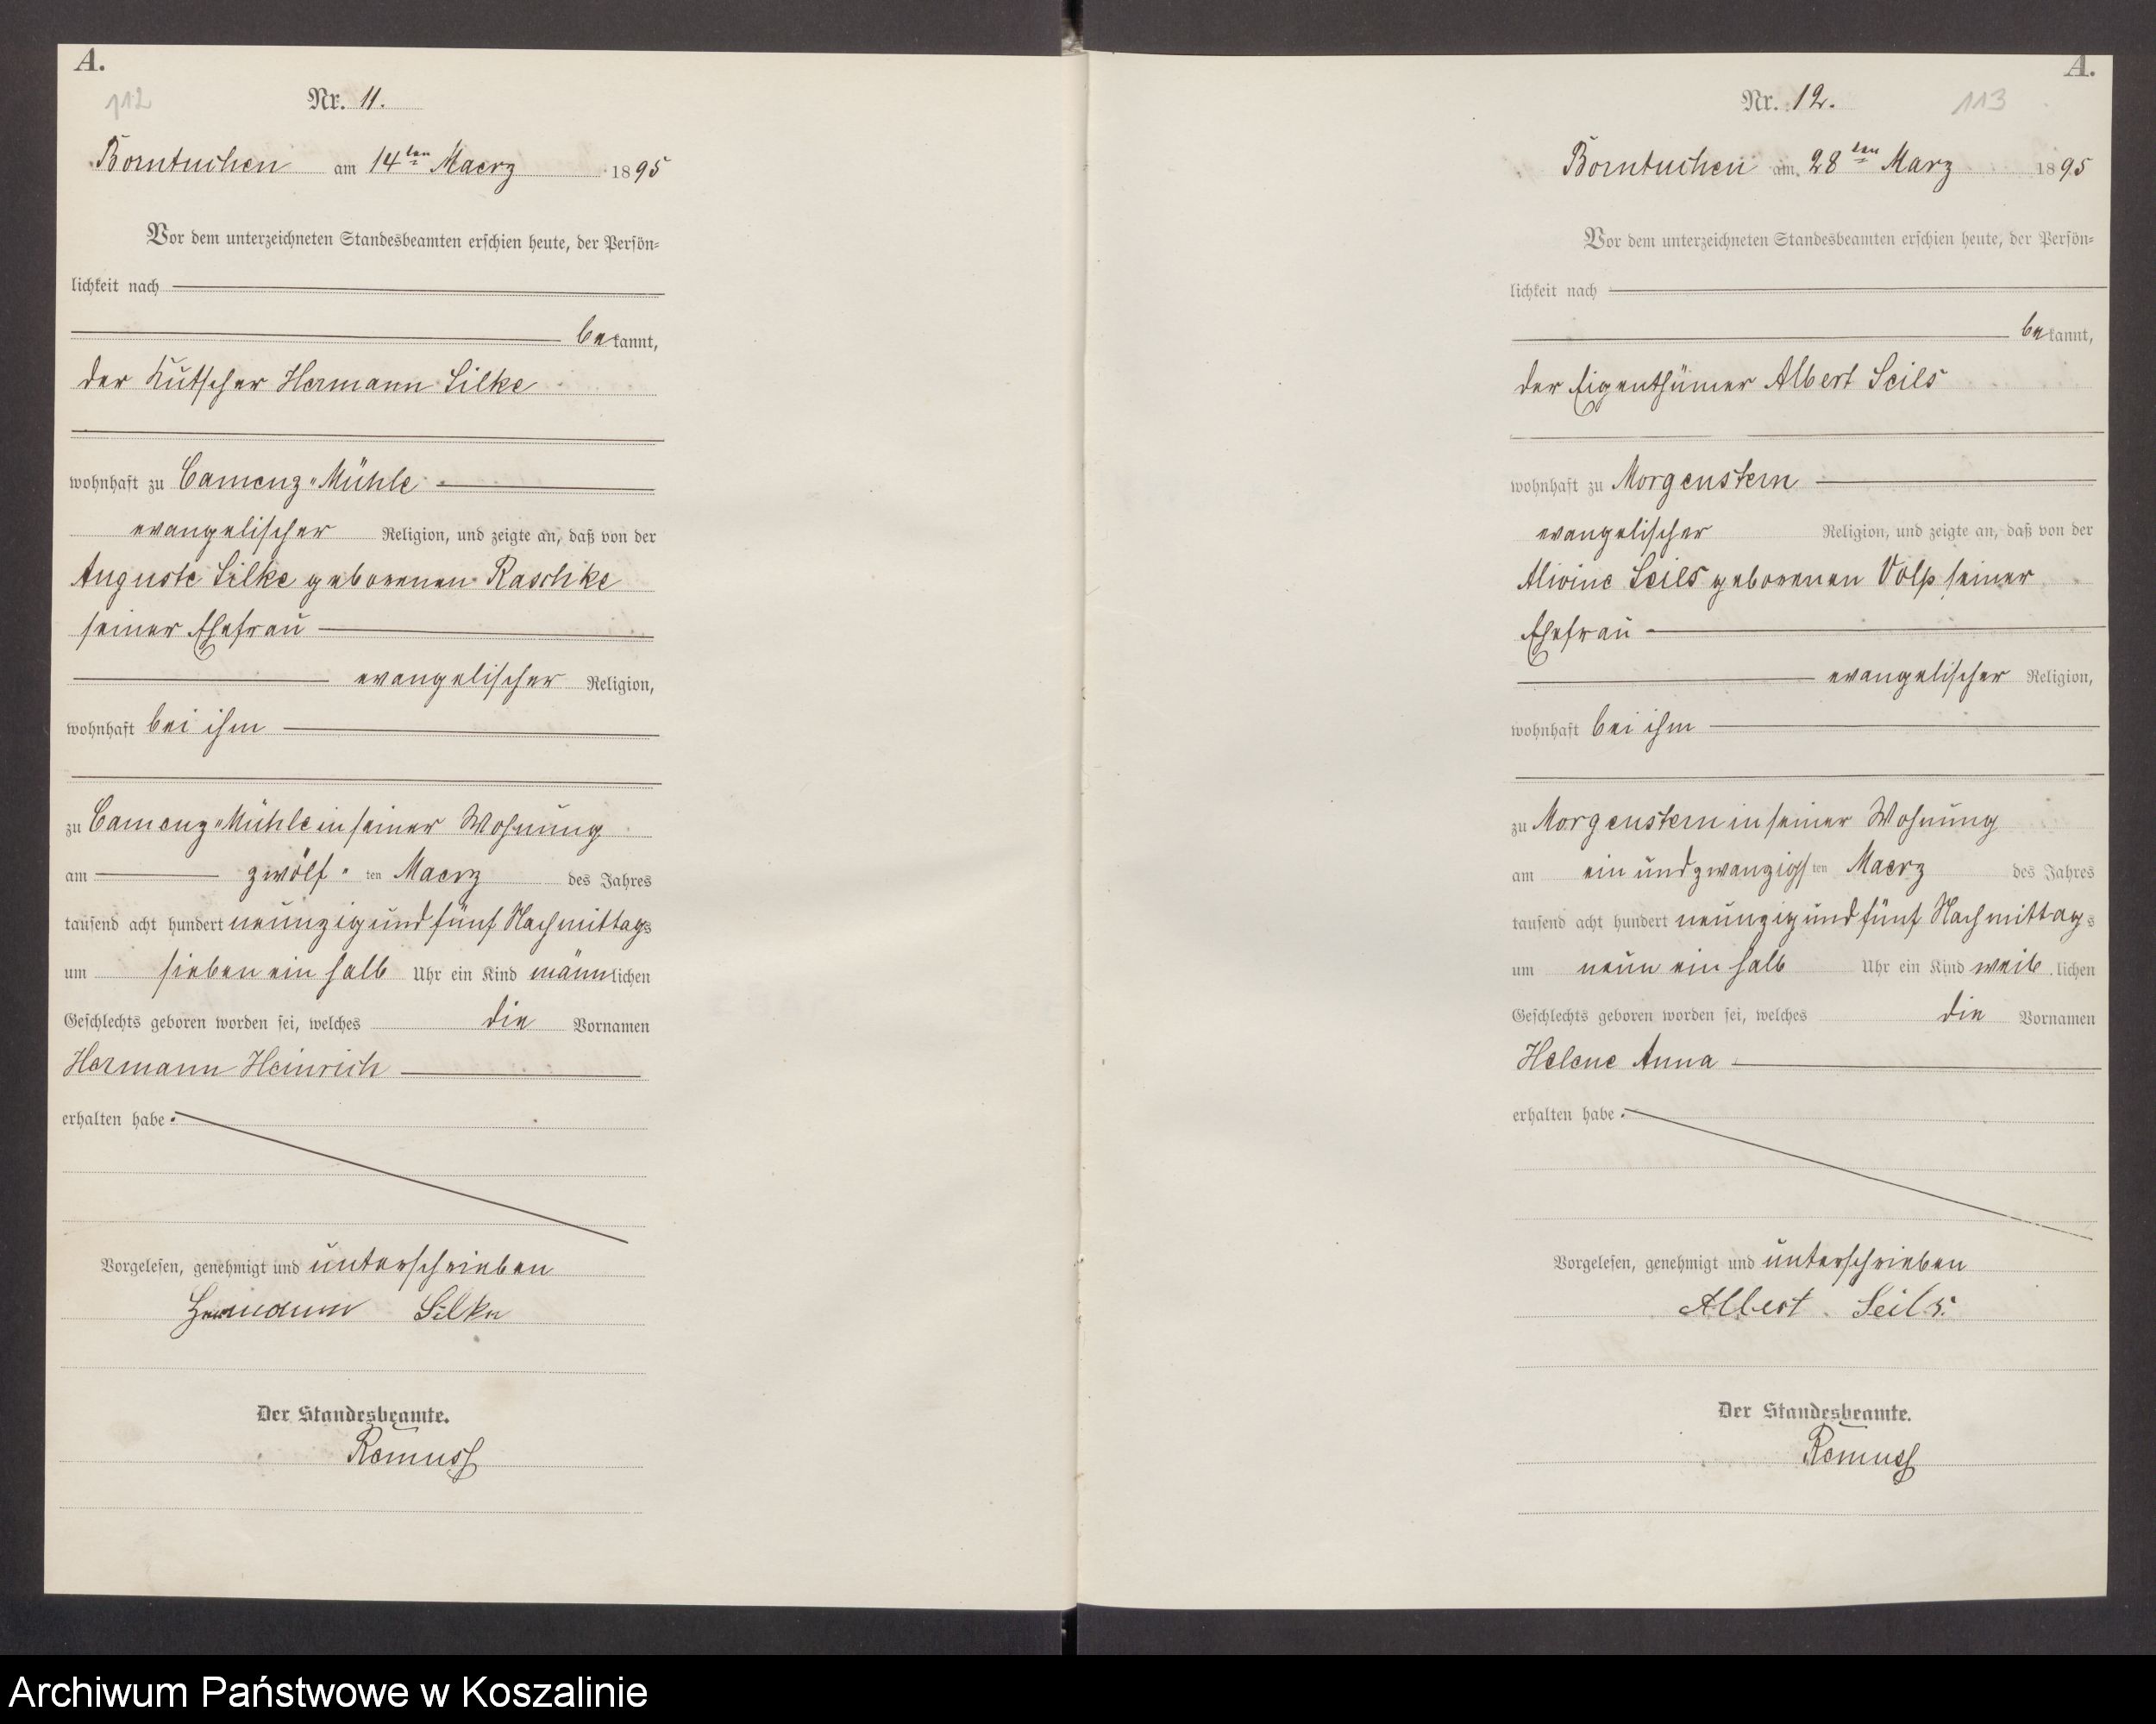 A.
112
Nr. 11.
Borntuchen am 14ten Maerz 1895
Vor dem unterzeichneten Standesbeamten erschien heute, der Persön=
lichkeit nach
bekannt,
der Kutscher Hermann Silke
wohnhaft zu Camenz-Mühle
evangelischer Religion, und zeigte an, daß von der
Auguste Silke geborenen Raschke
seiner Ehefrau
evangelischer Religion,
wohnhaft bei ihm
zu Camenz-Mühle in seiner Wohnung
am zwölften Maerz des Jahres
tausend acht hundert neunzig und fünf Nachmittags
um sieben ein halb Uhr ein Kind männlichen
Geschlechts geboren worden sei, welches die Vornamen
Hermann Heinrich
erhalten habe.
Vorgelesen, genehmigt und unterschrieben
Hermann Silke
Der Standesbeamte.
Remuss
A.
113
Nr. 12.
Borntuchen am 28ten Marz 1895
Vor dem unterzeichneten Standesbeamten erschien heute, der Persön=
lichkeit nach
bekannt,
der Eigenthümer Albert Seils
wohnhaft zu Morgenstern
evangelischer Religion, und zeigte an, daß von der
Alwine Seils geborenen Volß seiner
Ehefrau
evangelischer Religion,
wohnhaft bei ihm
zu Morgenstern in seiner Wohnung
am ein und zwanzigsten Maerz des Jahres
tausend acht hundert neunzig und fünf Nachmittags
um neun ein halb Uhr ein Kind weiblichen
Geschlechts geboren worden sei, welches die Vornamen
Helene Anna
erhalten habe.
Vorgelesen, genehmigt und unterschrieben
Albert Seils.
Der Standesbeamte.
Remuss
Archiwum Państwowe w Koszalinie